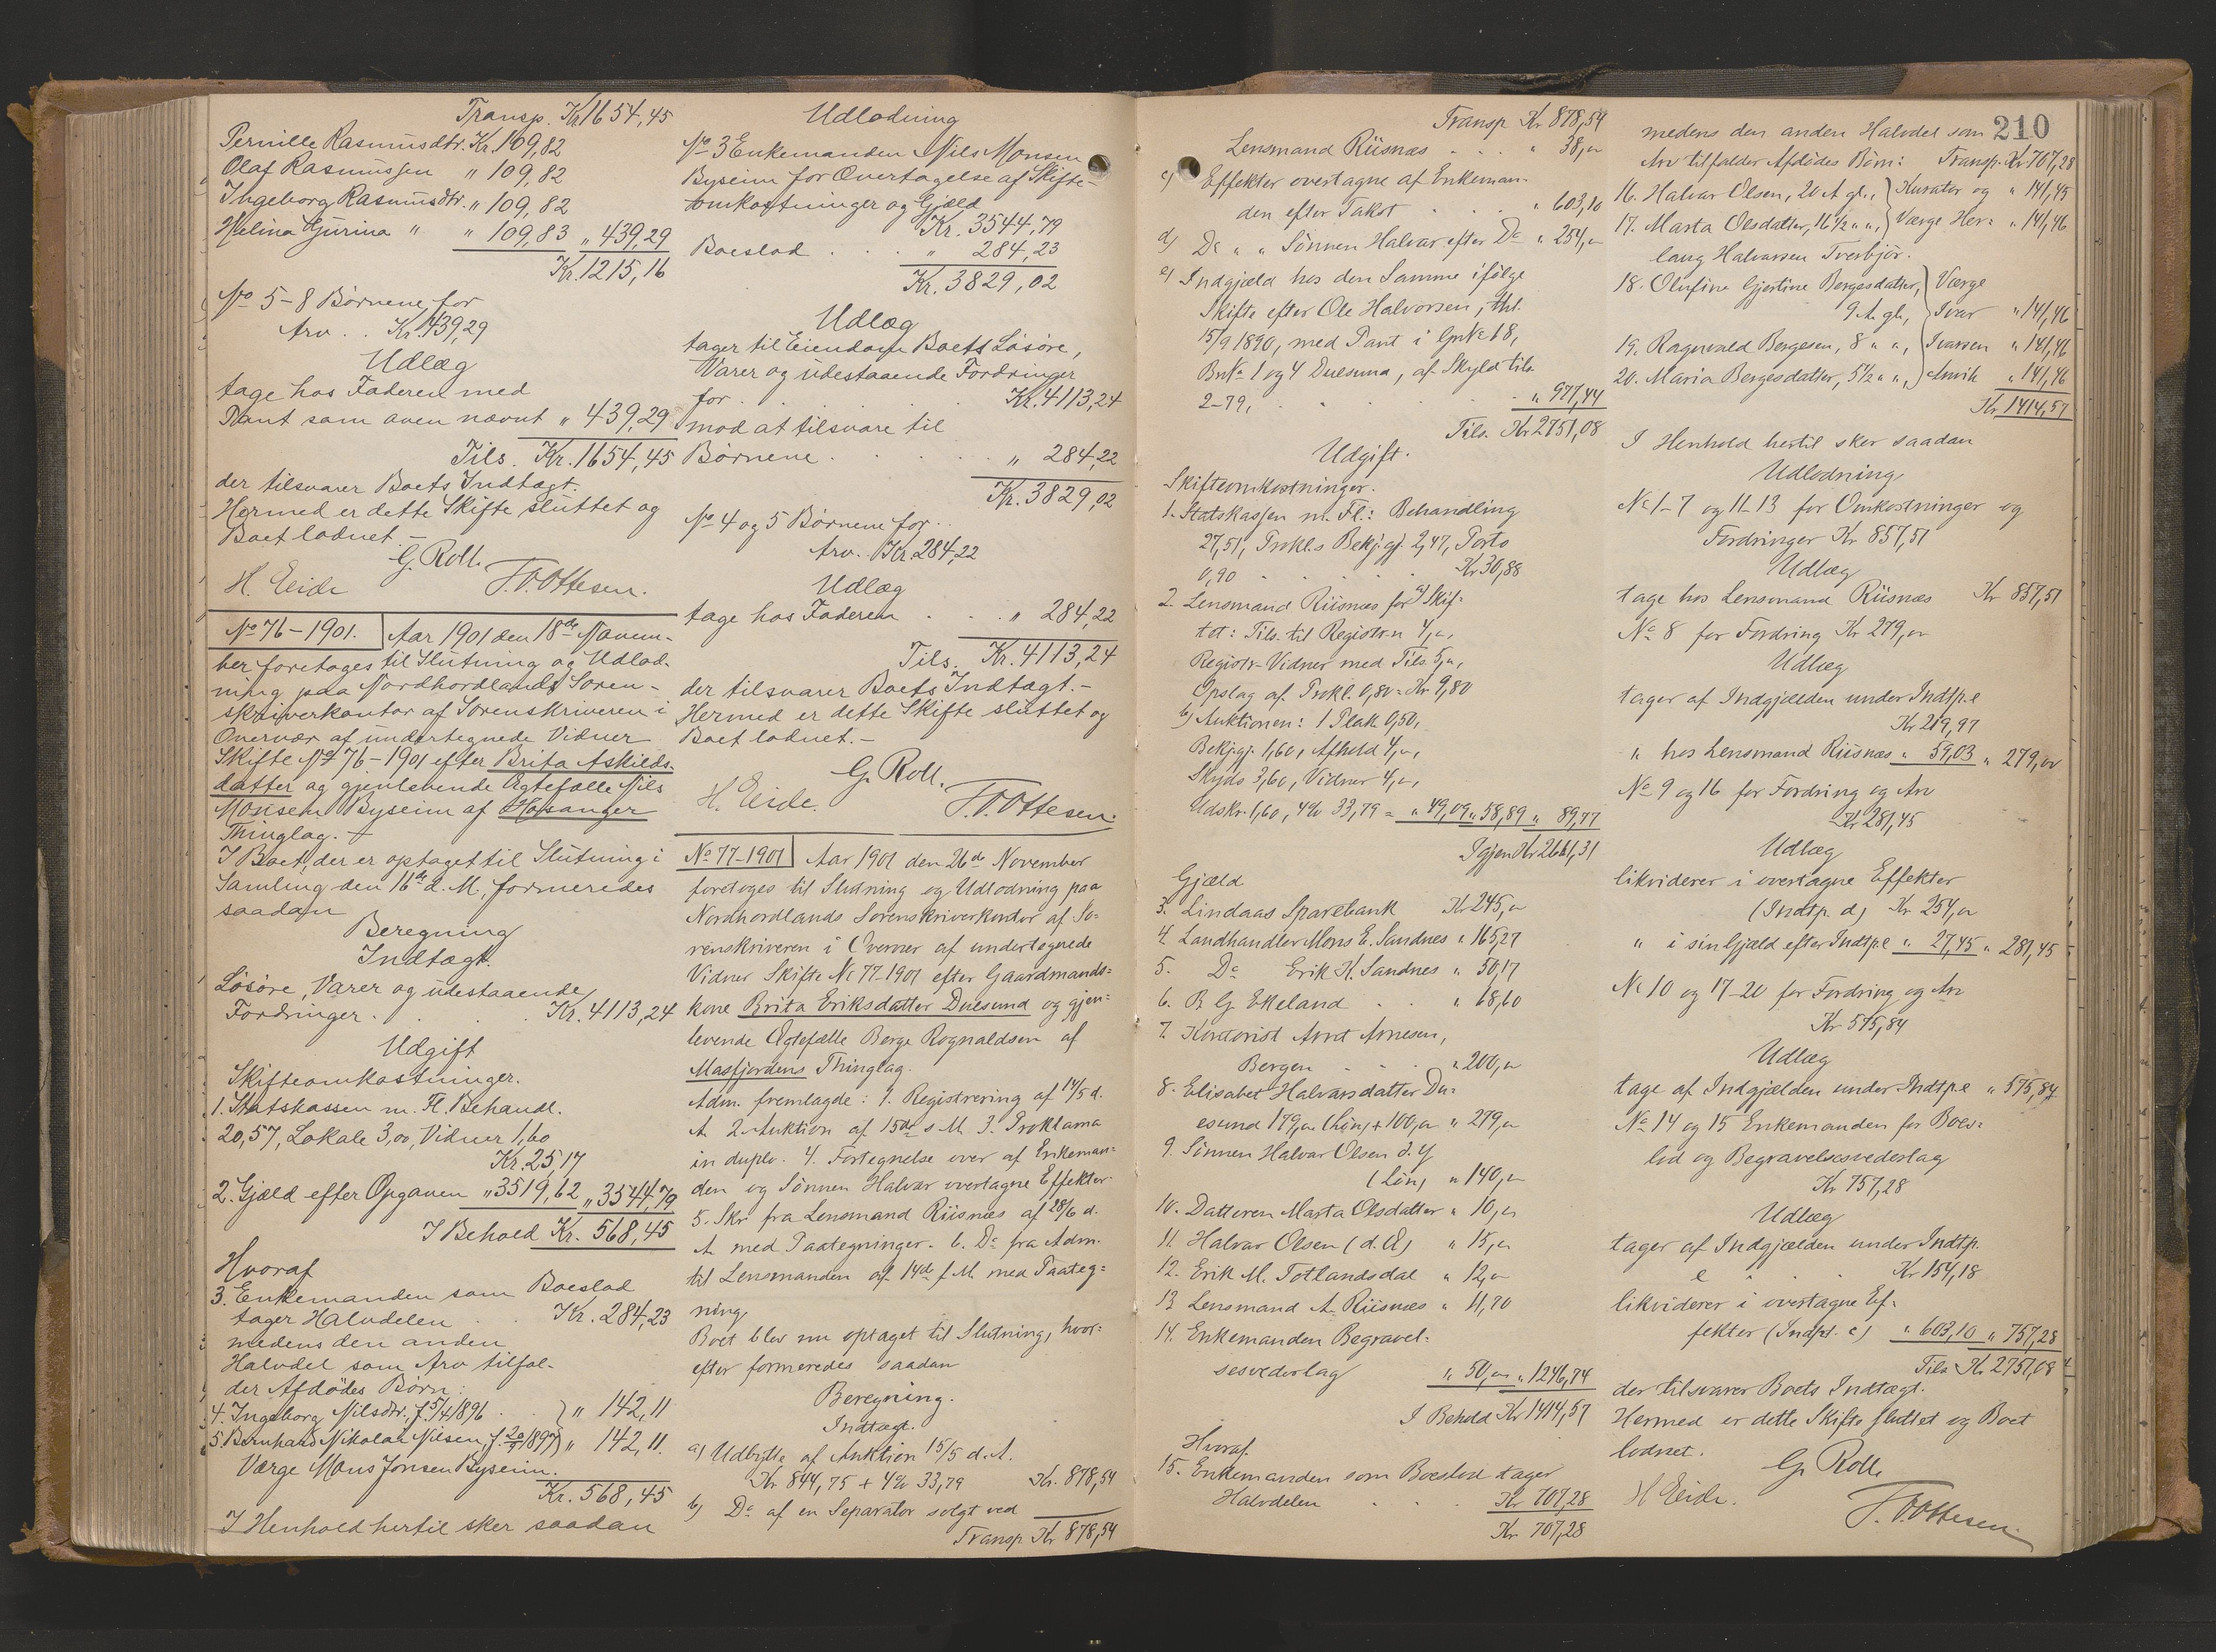 Transp. Kr. 1654,45
Pernille Rasmusdtr. Kr. 109,82
Olaf Rasmussen " 109,82
Ingeborg Rasmusdtr. " 109,82
Helina Gurina " " 109,83 " 439,29
Kr. 1215,16
No 5-8 Børnene for
Arv . . Kr. 439,29
Udlæg
tage hos Faderen med
Pant som oven nævnt " 439,29
Tils. Kr. 1654,45
der tilsvarer Boets Indtægt.
Hermed er dette Skifte sluttet og
Boet lodnet.-
G. Roll.
H. Eide F.V. Ottesen.
No 76-1901. Aar 1901 den 18de Novem-
ber foretoges til Slutning og Udlod-
ning paa Nordhordlands Soren-
skriverkontor af Sorenskriveren i
Overvær af undertegnede Vidner
Skifte No 76-1901 efter Brita Askilds-
datter og gjenlevende Ægtefælle Nils
Monsen Byseim af Hosanger
Thinglag.-
I Boet, der er optaget til Slutning i
Samling den 16de d. M., formeredes
saadan
Beregning
Indtægt.
Løsøre, Varer og udestaaende
Fordringer . . . Kr. 4113,24
Udgift
Skifteomkostninger.
1. Statskassen m. Fl. Behandl.
20,57, Lokale 3,00, Vidner 1,60
Kr. 25,17
2. Gjæld efter Opgaven " 3519,62 " 3544,79
I Behold Kr. 568,45
Hvoraf
3. Enkemanden som Boeslod
tager Halvdelen . . Kr. 284,23
medens den anden
Halvdel som Arv tilfal-
der Afdødes Børn:
4. Ingeborg Nilsdtr., f. 5/4 1896 . . } " 142,11
5. Bernhard Nikolai Nilsen, f. 1897 } " 142,11.
Værge Mons Jonsen Byseim.
Kr. 568,45
I Henhold hertil sker saadan
Udlodning
No 3 Enkemanden Nils Monsen
Byseim for Overtagelse af Skifte-
omkostninger og Gjæld
Kr. 3544,79
Boeslod . . . " 284,23
Kr. 3829,02
Udlæg
tager til Eiendom Boets Løsøre,
Varer og udestaaende Fordringer
for . . . Kr. 4113,24
mod at tilsvare til
Børnene . . . " 284,22
Kr. 3829,02
No 4 og 5 Børnene for . .
Arv. Kr. 284,22
Udlæg
tage hos Faderen . . . " 284,22
Tils. Kr. 4113,24
der tilsvarer Boets Indtægt.-
Hermed er dette Skifte sluttet og
Boet lodnet.-
G. Roll.
H. Eide. F.V. Ottesen.
No 77-1901 Aar 1901 den 26de November
foretoges til Slutning og Udlodning paa
Nordhordlands Sorenskriverkontor af So=
renskriveren i Overvær af undertegnede
Vidner Skifte No 77-1901 efter Gaardmands=
kone Brita Eriksdatter Duesund og gjen=
levende Ægtefælle Berge Rognaldsen af
Masfjordens Thinglag.
Adm. fremlagde: 1. Registrering af 14/5 d.
A. 2. Auktion af 15de s. M. 3. Proklama
in duplo. 4. Fortegnelse over af Enkeman=
den og Sønnen Halvar overtagne Effekter.
5. Skr. fra Lensmand Riisnæs af 28/6 d.
A. med Paategninger. 6. Do fra Adm.
til Lensmanden af 14de f. M. med Paateg=
ning.
Boet blev nu optaget til Slutning, hvor=
efter formeredes saadan
Beregning.
Indtægt.
a) Udbytte af Auktion 15/5 d. A.
Kr 844,75 + 4% 33,79 Kr. 878,54
b) Do af en Separator solgt ved
Transp Kr 878,54
Transp Kr 878,54
Lensmand Riisnæs . . . " 38,00
c) Effekter overtagne af Enkeman-
den efter Takst . . . " 603,10
d) Do " " Sønnen Halvar efter Do " 254,00
e) Indgjæld hos den Samme ifølge
Skifte efter Ole Halvorsen, thl.
15/9 1890, med Pant i Gn No 18,
Bn No 1 og 4 Duesund, af Skyld tils.
2-79, . . . " 977,44
Tils. Kr 2751,08
Udgift.
Skifteomkostninger.
1. Statskassen m. Fl.: Behandling
27,51, Prokl.s Bekj. gj. 2,47, Porto
0,90 . . . Kr 30,88
2. Lensmand Riisnæs for a) Skif-
tet: Tils. til Registr.n 4,00,
Registr. Vidner med Tils. 5,00,
Opslag af Prokl. 0,80 = Kr 9,80
b) Auktionen: 1 Plak. 0,50,
Bekj.gj. 1,60, Afhold 4,00,
Skyds 3,60, Vidner 4,00,
Udskr. 1,60, 4% 33,79 = " 49,09 " 58,89 " 89,77
Igjen Kr 2661,31
Gjæld
3. Lindaas Sparebank Kr 245,00
4. Landhandler Mons E. Sandnes " 165,27
5. Do Erik H. Sandnes " 50,17
6. R. G. Ekeland . . " 68,60
7. Kontorist Arnt Arnesen,
Bergen . . . " 200,00
8. Elisabet Halvarsdatter Du=
esund 179,00 (Løn) + 100,00 " 279,00
9. Sønnen Halvar Olsen d. Y
(Løn) " 140,00
10. Datteren Marta Olsdatter " 10,00
11. Halvar Olsen (d. Æ) " 15,00
12. Erik M. Totlandsdal " 12,00
13. Lensmand A. Riisnæs " 11,70
14. Enkemanden Begravel=
sesvederlag " 50,00 " 1246,74
I Behold Kr 1414,57
Hvoraf
15. Enkemanden som Boeslod tager
Halvdelen . . . Kr 707,28
Kr 707,28
210
medens den anden Halvdel som
Arv tilfalder Afdødes Børn: Transp. Kr 707,28
16. Halvar Olsen, 20 A. gl., } Kurator og " 141,45
17. Marta Olsdatter, 16 1/2 " ", } Værge Her= " 141,46
laug Halvarsen Tverbjør.
18. Olufine Gjertine Bergesdatter, } Værge
9 A. gl., } Ivar " 141,46
19. Ragnvald Bergesen, 8 " ", } Ivarsen " 141,46
20. Maria Bergesdatter, 5 1/2 " ", } Anvik " 141,46
Kr 1414,57
I Henhold hertil sker saadan
Udlodning
No 1-7 og 11-13 for Omkostninger og
Fordringer Kr 857,51
Udlæg
tage hos Lensmand Riisnæs Kr 857,51
No 8 for Fordring Kr 279,00
Udlæg
tager af Indgjælden under Indtp. e
Kr 219,97
" hos Lensmand Riisnæs " 59,03 " 279,00
No 9 og 16 for Fordring og Arv
Kr 281,45
Udlæg
likviderer i overtagne Effekter
(Indtp. d) Kr 254,00
" i sin Gjæld efter Indtp. e " 27,45 " 281,45
No 10 og 17-20 for Fordring og Arv
Kr 575,84
Udlæg
tage af Indgjælden under Indtp. e " 575,84
No 14 og 15 Enkemanden for Boes=
lod og Begravelsesvederlag
Kr 757,28
Udlæg
tager af Indgjælden under Indtp.
e . . . Kr 154,18
likviderer i overtagne Ef=
fekter (Indtp. c) " 603,10 " 757,28
Tils Kr 2751,08
der tilsvarer Boets Indtægt.
Hermed er dette Skifte sluttet og Boet
lodnet. G. Roll.
H Eide. F.V. Ottesen.